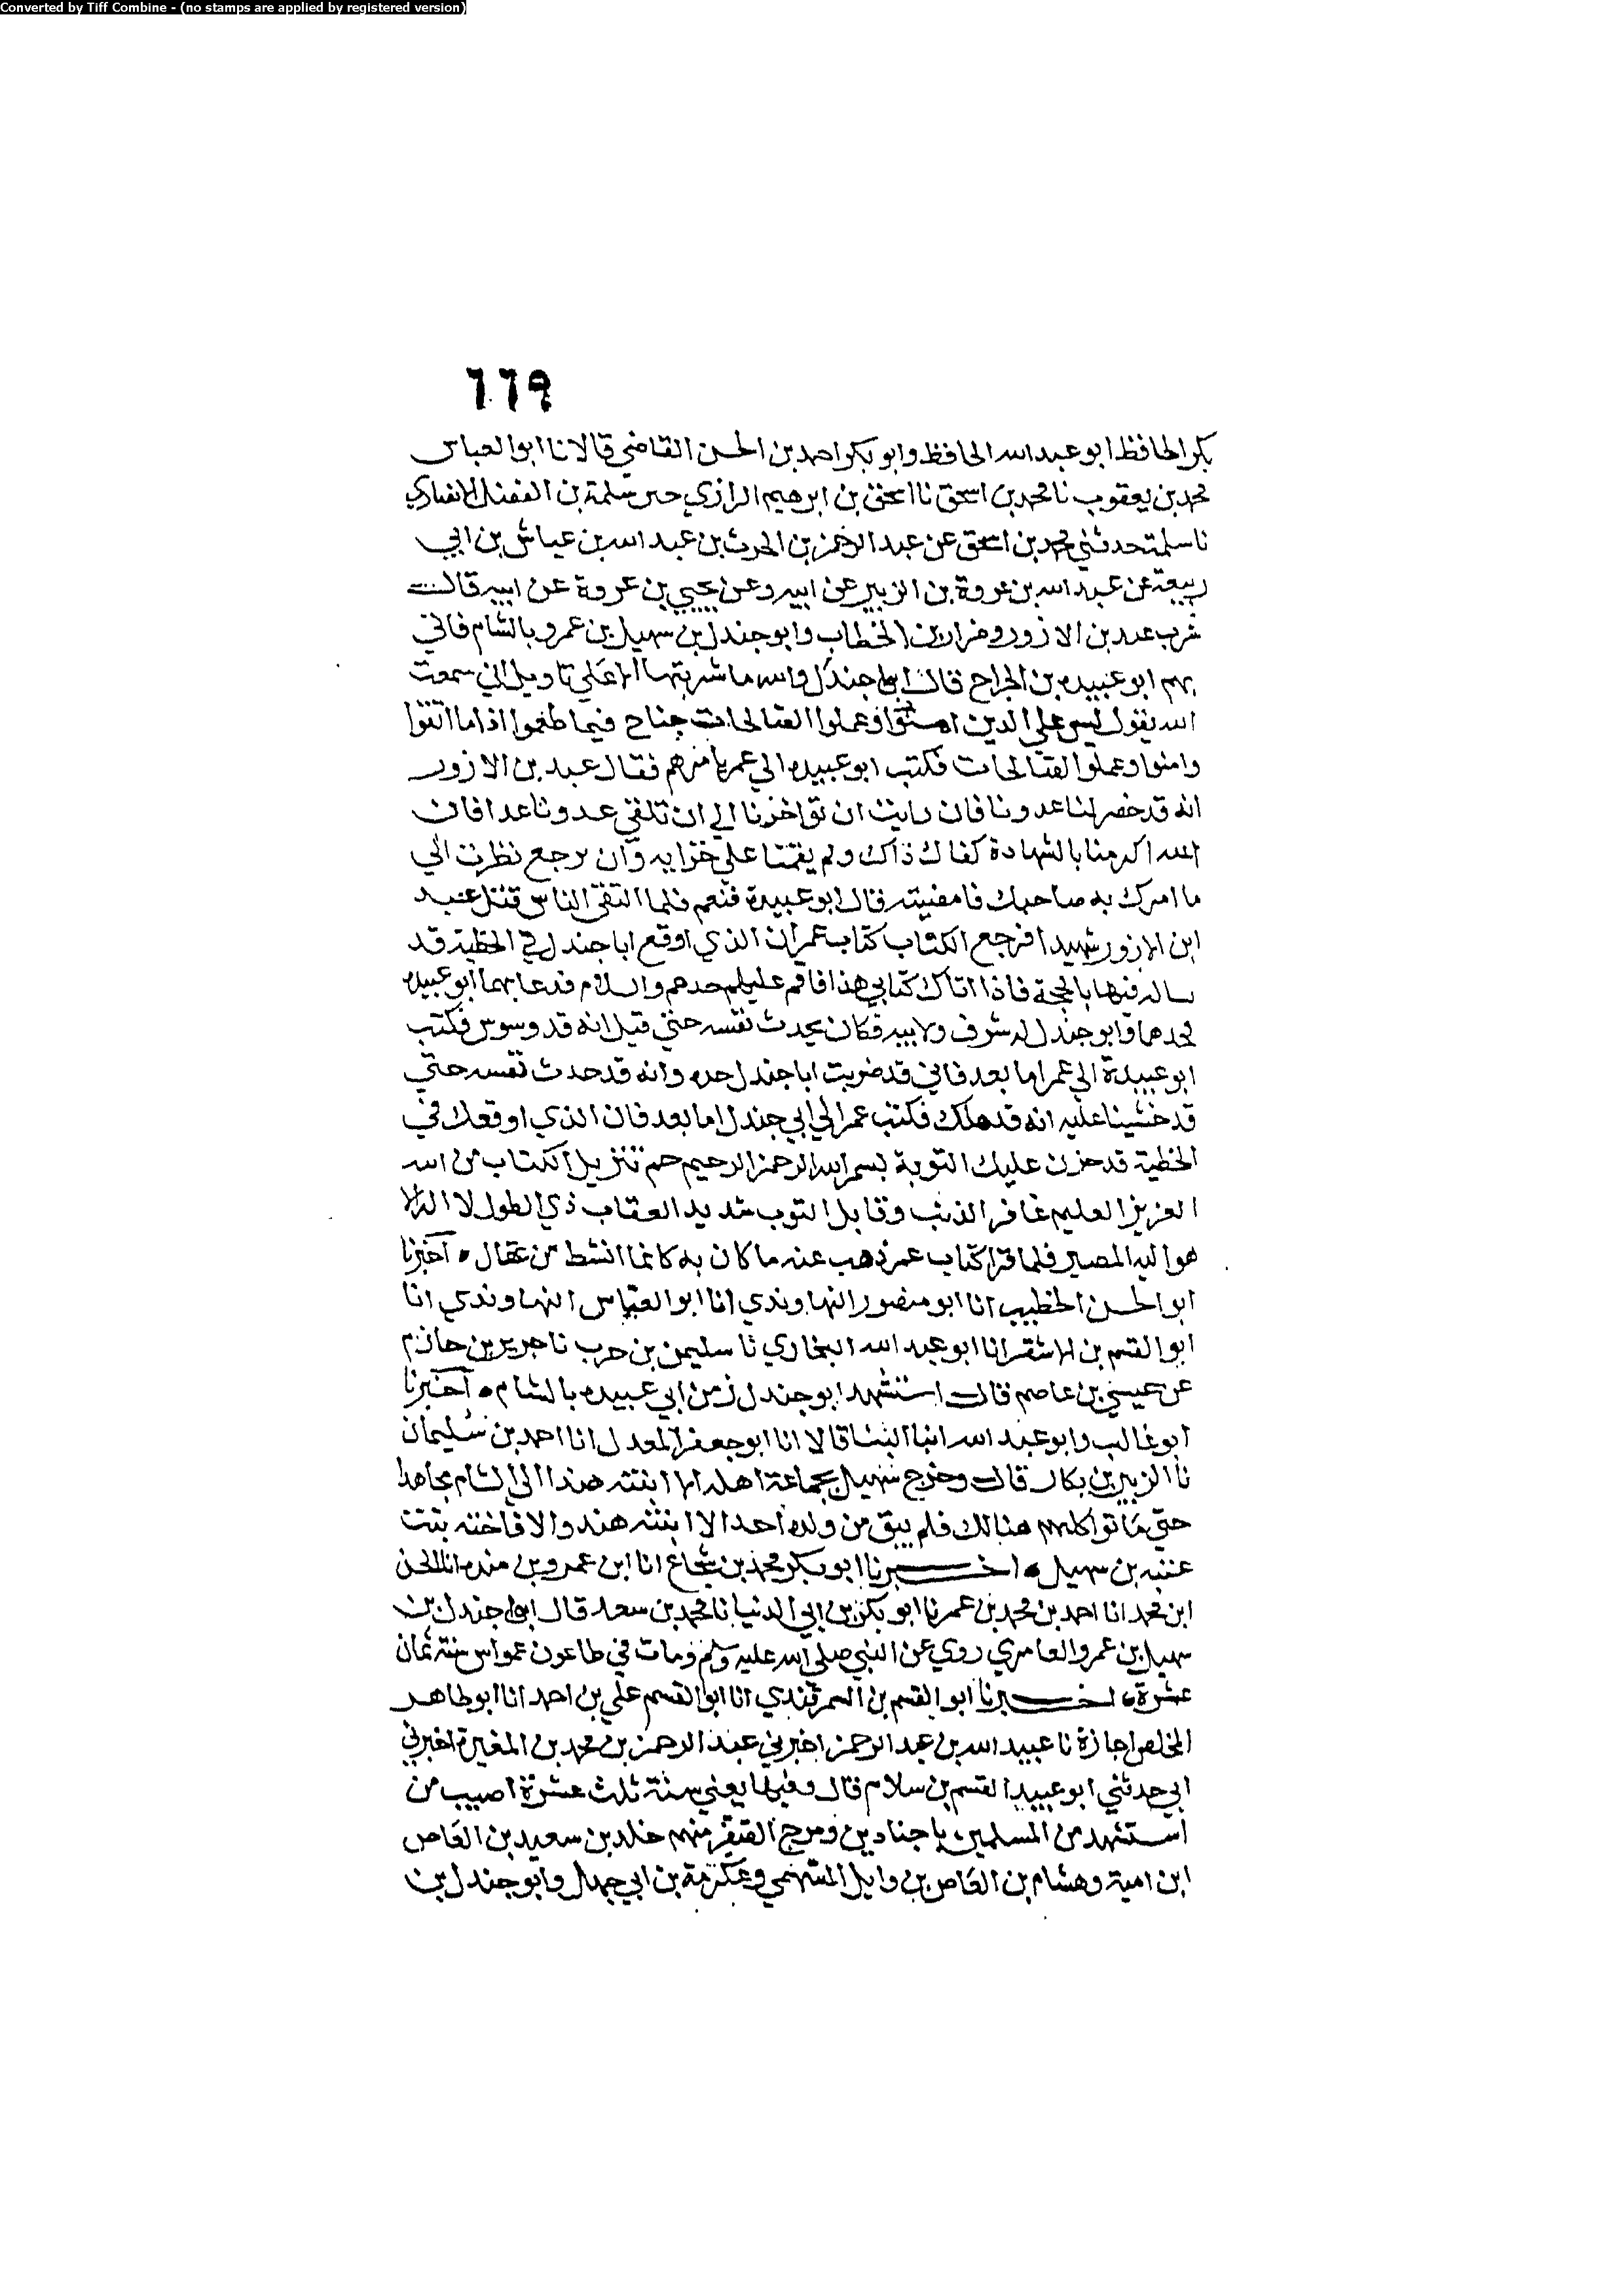 Converted by Tiff Combine - (no stamps are applied by registered version)
٦٦٩
بكر الحافظ ابو عبد الله الحافظ وابو بكر احمد بن الحسن القاضي قالا نا ابو العباس
محمد بن يعقوب نا محمد بن اسحق نا اسحق بن ابرهيم الرازي ختن سلمة بن الفضل الانصاري
نا سلمة حدثني محمد بن اسحق عن عبد الرحمن بن الحرث بن عبد الله بن عياش بن ابي
ربيعة عن عبد الله بن عروة بن الزبير عن ابيه وعن يحيي بن عروة عن ابيه قالت
شرب عبد بن الازور وضرار بن الخطاب وابو جندل بن سهيل بن عمرو بالشام فاتي
بهم ابو عبيده بن الجراح قال ابو جندل والله ما شربتها الا علي تاويل اني سمعت
الله يقول ليس علي الذين امنوا وعملوا الصالحات جناح فيما طعموا اذا ما اتقوا
وامنوا وعملوا الصالحات فكتب ابو عبيده الي عمر بامرهم فقال عبد بن الازور
انه قد حضر لنا عدونا فان رايت ان تؤاخرنا الي ان نلقي عدونا غدا فان
الله اكرمنا بالشهادة كفاك ذاك ولم يقمنا علي خزايه وان نرجع نظرت الي
ما امرك به صاحبك فامضيته قال ابو عبيدة فنعم فلما التقي الناس قتل عبد
ابن الازور شهيدا فرجع الكتاب كتاب عمر ان الذي اوقع ابا جندل في الخطية قد
ساله فيها بالحجة فاذا اتاك كتابي هذا فاقم عليهم حدهم والسلام فدعا بهما ابو عبيده
فحدهما وابو جندل له شرف ولابيه فكان يحدث نفسه حتي قيل انه قد وسوس فكتب
ابو عبيدة الي عمر اما بعد فاني قد ضربت ابا جندل حده وانه قد حدث نفسه حتي
قد خشينا عليه انه قد هلك فكتب عمر الي ابي جندل اما بعد فان الذي اوقعك في
الخطية قد حزن عليك التوبة بسم الله الرحمن الرحيم حم تنزيل الكتاب من الله
العزيز العليم غافر الذنب وقابل التوب شديد العقاب ذي الطول لا اله الا
هو اليه المصير فلما قرا كتاب عمر ذهب عنه ما كان به كانما انشط من عقال ٥ اخبرنا
ابو الحسن الخطيب انا ابو منصور النهاوندي انا ابو العباس النهاوندي انا
ابو القسم بن الاشقر انا ابو عبد الله البخاري نا سليمن بن حرب نا جرير بن حازم
عن عيسي بن عاصم قال استشهد ابو جندل زمن ابي عبيده بالشام ٥ اخبرنا
ابو غالب وابو عبد الله ابنا البنا قالا انا ابو جعفر المعدل انا احمد بن سليمان
نا الزبير بن بكار قال وخرج سهيل بجماعة اهله الا ابنته هندا الي الشام مجاهدا
حتي ماتوا كلهم هنالك فلم يبق من ولده احد الا ابنته هند والا فاخته بنت
عتبه بن سهيل ٥ اخبرنا ابو بكر محمد بن شجاع انا ابن عمرو بن منده انا الحسن
ابن محمد انا احمد بن محمد بن عمر نا ابو بكر بن ابي الدنيا نا محمد بن سعد قال ابو جندل بن
سهيل بن عمرو العامري روي عن النبي صلي الله عليه وسلم ومات في طاعون عمواس سنة ثمان
عشرة ٥ اخبرنا ابو القسم بن السمرقندي انا ابو القسم علي بن احمد انا ابو طاهر
المخلص اجازة نا عبيد الله بن عبد الرحمن اخبرني عبد الرحمن بن محمد بن المغيرة اخبرني
ابي حدثني ابو عبيد القسم بن سلام قال وفيها يعني سنة ثلث عشرة اصيب من
استشهد من المسلمين باجنادين ومرج الصفر منهم خلد بن سعيد بن العاص
ابن امية وهشام بن العاص بن وايل السهمي وعكرمة بن ابي جهل وابو جندل بن